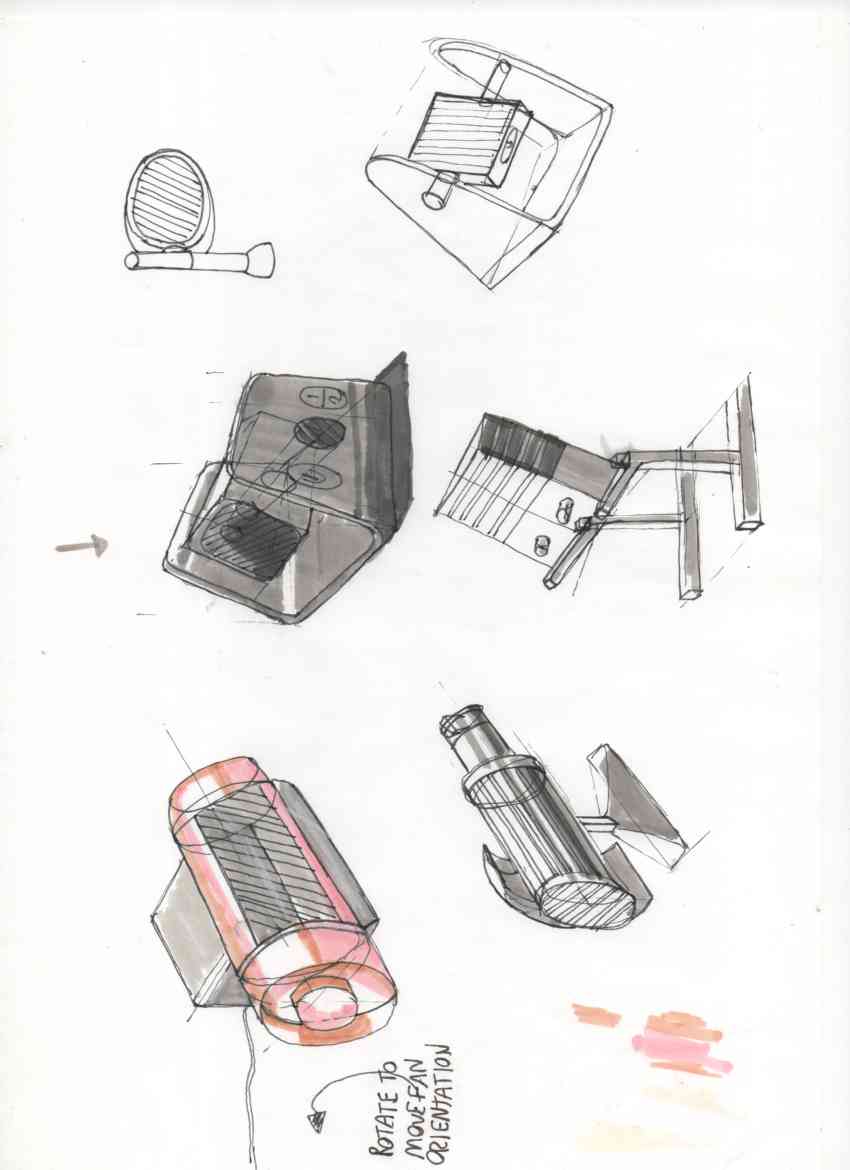 ROTATE TO
MOVE FAN
ORIENTATION